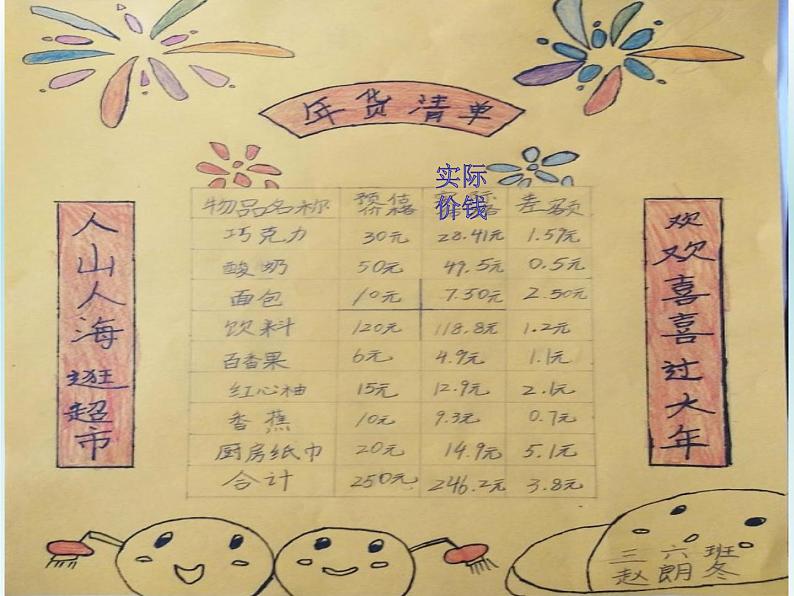 年货清单
人山人海逛超市
欢欢喜喜过大年
物品名称 实际价钱 差额
巧克力 30元 28.41元 1.59元
酸奶 50元 49.5元 0.5元
面包 10元 7.50元 2.50元
饮料 120元 118.8元 1.2元
百香果 6元 4.9元 1.1元
红心柚 15元 12.9元 2.1元
香蕉 10元 9.3元 0.7元
厨房纸巾 20元 14.9元 5.1元
合计 250元 246.2元 3.8元
三六班
赵朗冬